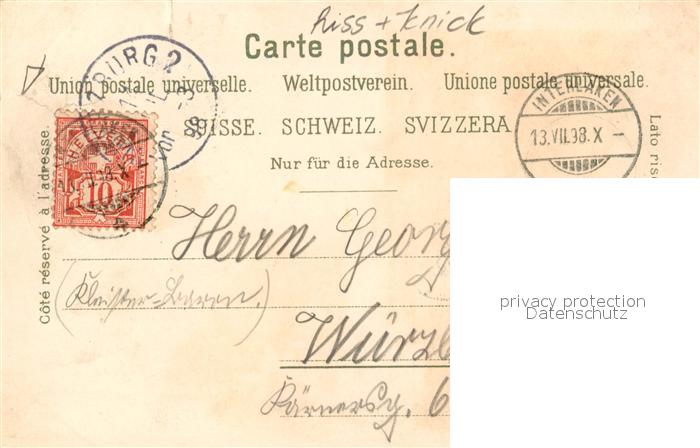 Riss + Knick
Carte postale.
Union postale universelle. Weltpostverein. Unione postale universale.
SUISSE. SCHWEIZ. SVIZZERA
Nur für die Adresse.
Côté réservé à l'adresse.
Lato rise
ZBURG 2
98
INTERLAKEN
13.VII.98.X –
HELVETIA
10
Herrn Georg
(Kleister-Baron.)
Würzb
Kärnersg. 6
privacy protection
Datenschutz